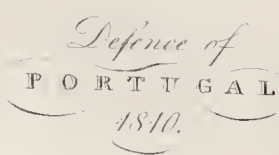 Defence of
PORTUGAL
1810.